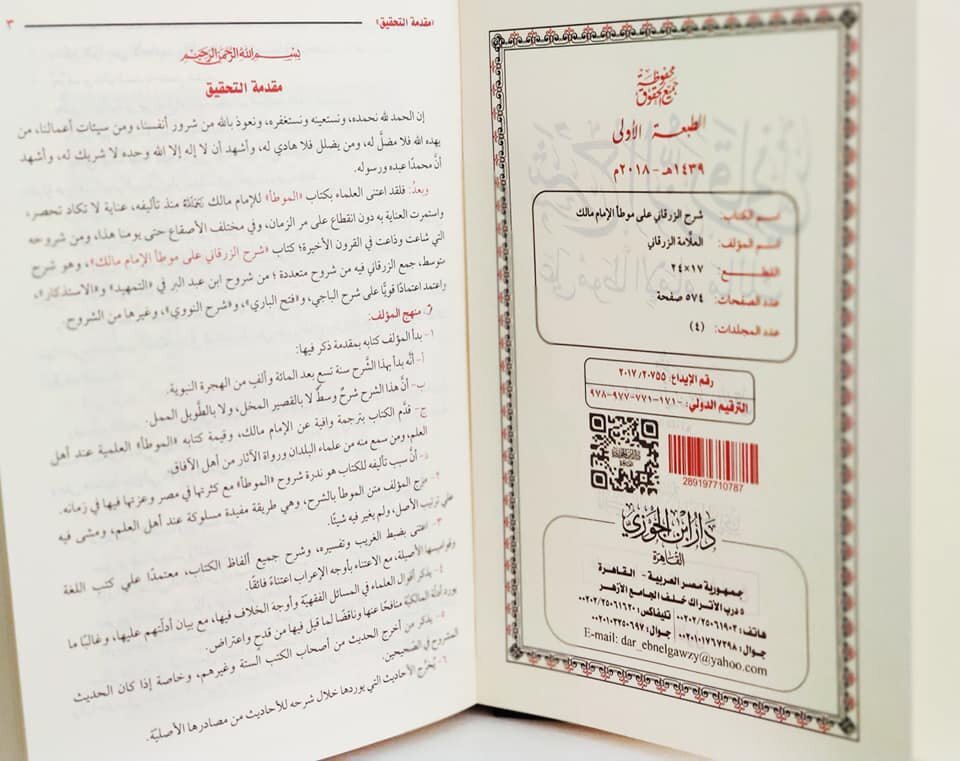 جميع الحقوق محفوظة
الطبعة الأولى
١٤٣٩هـ - ٢٠١٨م
اسم الكتاب: شرح الزرقاني على موطأ الإمام مالك
اسم المؤلف: العلَّامة الزرقاني
القطع: ١٧×٢٤
عدد الصفحات: ٥٧٤ صفحة
عدد المجلدات: (٤)
رقم الإيداع: ٢٠١٧/٢٠٧٥٥
الترقيم الدولي: ٩٧٨-٩٧٧-٧٧١-١٧١-
289197710787
دار ابن الجوزي
القاهرة
جمهورية مصر العربية - القاهرة
٥ درب الأتراك خلف الجامع الأزهر
هاتف: ٠٠٢٠٢/٢٥٠٦١٩٠٣ تليفاكس: ٠٠٢٠٢/٢٥٠٦١٦٢٠
جوال: ٠٠٢٠١٠١٧٦٧٢٩٨ جوال: ٠٠٢٠١٠٢٢٥٠٦٩٧
E-mail: dar_ebnelgawzy@yahoo.com
«مقدمة التحقيق» ٣
بسم الله الرحمن الرحيم
مقدمة التحقيق
إن الحمد لله نحمده، ونستعينه ونستغفره، ونعوذ بالله من شرور أنفسنا، ومن سيئات أعمالنا، من
يهده الله فلا مضلَّ له، ومن يضلل فلا هادي له، وأشهد أن لا إله إلا الله وحده لا شريك له، وأشهد
أنَّ محمدًا عبده ورسوله.
وبعدُ: فلقد اعتنى العلماء بكتاب «الموطأ» للإمام مالك رَحِمَهُ اللهُ منذ تأليفه، عناية لا تكاد تحصر،
واستمرت العناية به دون انقطاع على مر الزمان، وفي مختلف الأصقاع حتى يومنا هذا، ومن شروحه
التي شاعت وذاعت في القرون الأخيرة؛ كتاب «شرح الزرقاني على موطأ الإمام مالك»، وهو شرح
متوسط، جمع الزرقاني فيه من شروح متعددة؛ من شروح ابن عبد البر في «التمهيد» و«الاستذكار»،
واعتمد اعتمادًا قويًّا على شرح الباجي، و«فتح الباري»، و«شرح النووي»، وغيرها من الشروح.
منهج المؤلف:
١- بدأ المؤلف كتابه بمقدمة ذكر فيها:
أ- أنَّه بدأ بهذا الشَّرح سنة تسع بعد المائة وألفٍ من الهجرة النبوية.
ب- أنَّ هذا الشرح شرحٌ وسطٌ لا بالقصير المخل، ولا بالطَّويل الممل.
ج- قدَّم الكتاب بترجمة وافية عن الإمام مالك، وقيمة كتابه «الموطأ» العلمية عند أهل
العلم، ومن سمع منه من علماء البلدان ورواة الآثار من أهل الآفاق.
د- أنَّ سبب تأليفه للكتاب هو ندرة شروح «الموطأ» مع كثرتها في مصر وعزتها فيها في زمانه.
مزج المؤلف متن الموطأ بالشرح، وهي طريقة مفيدة مسلوكة عند أهل العلم، ومشى فيه
على ترتيب الأصل، ولم يغير فيه شيئًا.
٣- اعتنى بضبط الغريب وتفسيره، وشرح جميع ألفاظ الكتاب، معتمدًا على كتب اللغة
وقواميسها الأصيلة، مع الاعتناء بأوجه الإعراب اعتناءً فائقًا.
٤- يذكر أقوال العلماء في المسائل الفقهيَّة وأوجه الخلاف فيها، مع بيان أدلَّتهم عليها، وغالبًا ما
يورد أدلَّة المالكيَّة منافحًا عنها وناقضًا لما قيل فيها من قدح واعتراض.
٥- يذكر من أخرج الحديث من أصحاب الكتب الستة وغيرهم، وخاصة إذا كان الحديث
المشروح في الصَّحيحين.
٦- يُخرِّج الأحاديث التي يوردها خلال شرحه للأحاديث من مصادرها الأصليَّة.